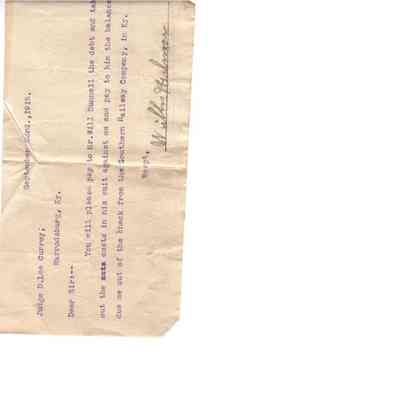 September 22nd.,1915.
Judge D.Lee Currey,
Harrodsburg, Ky.
Dear Sir:--
You will please pay to Mr.Will Dunnell the debt and
out the costs in his suit against me and pay to him the balance
due me out of the check from the Southern Railway Company, in Ky.
Respt.